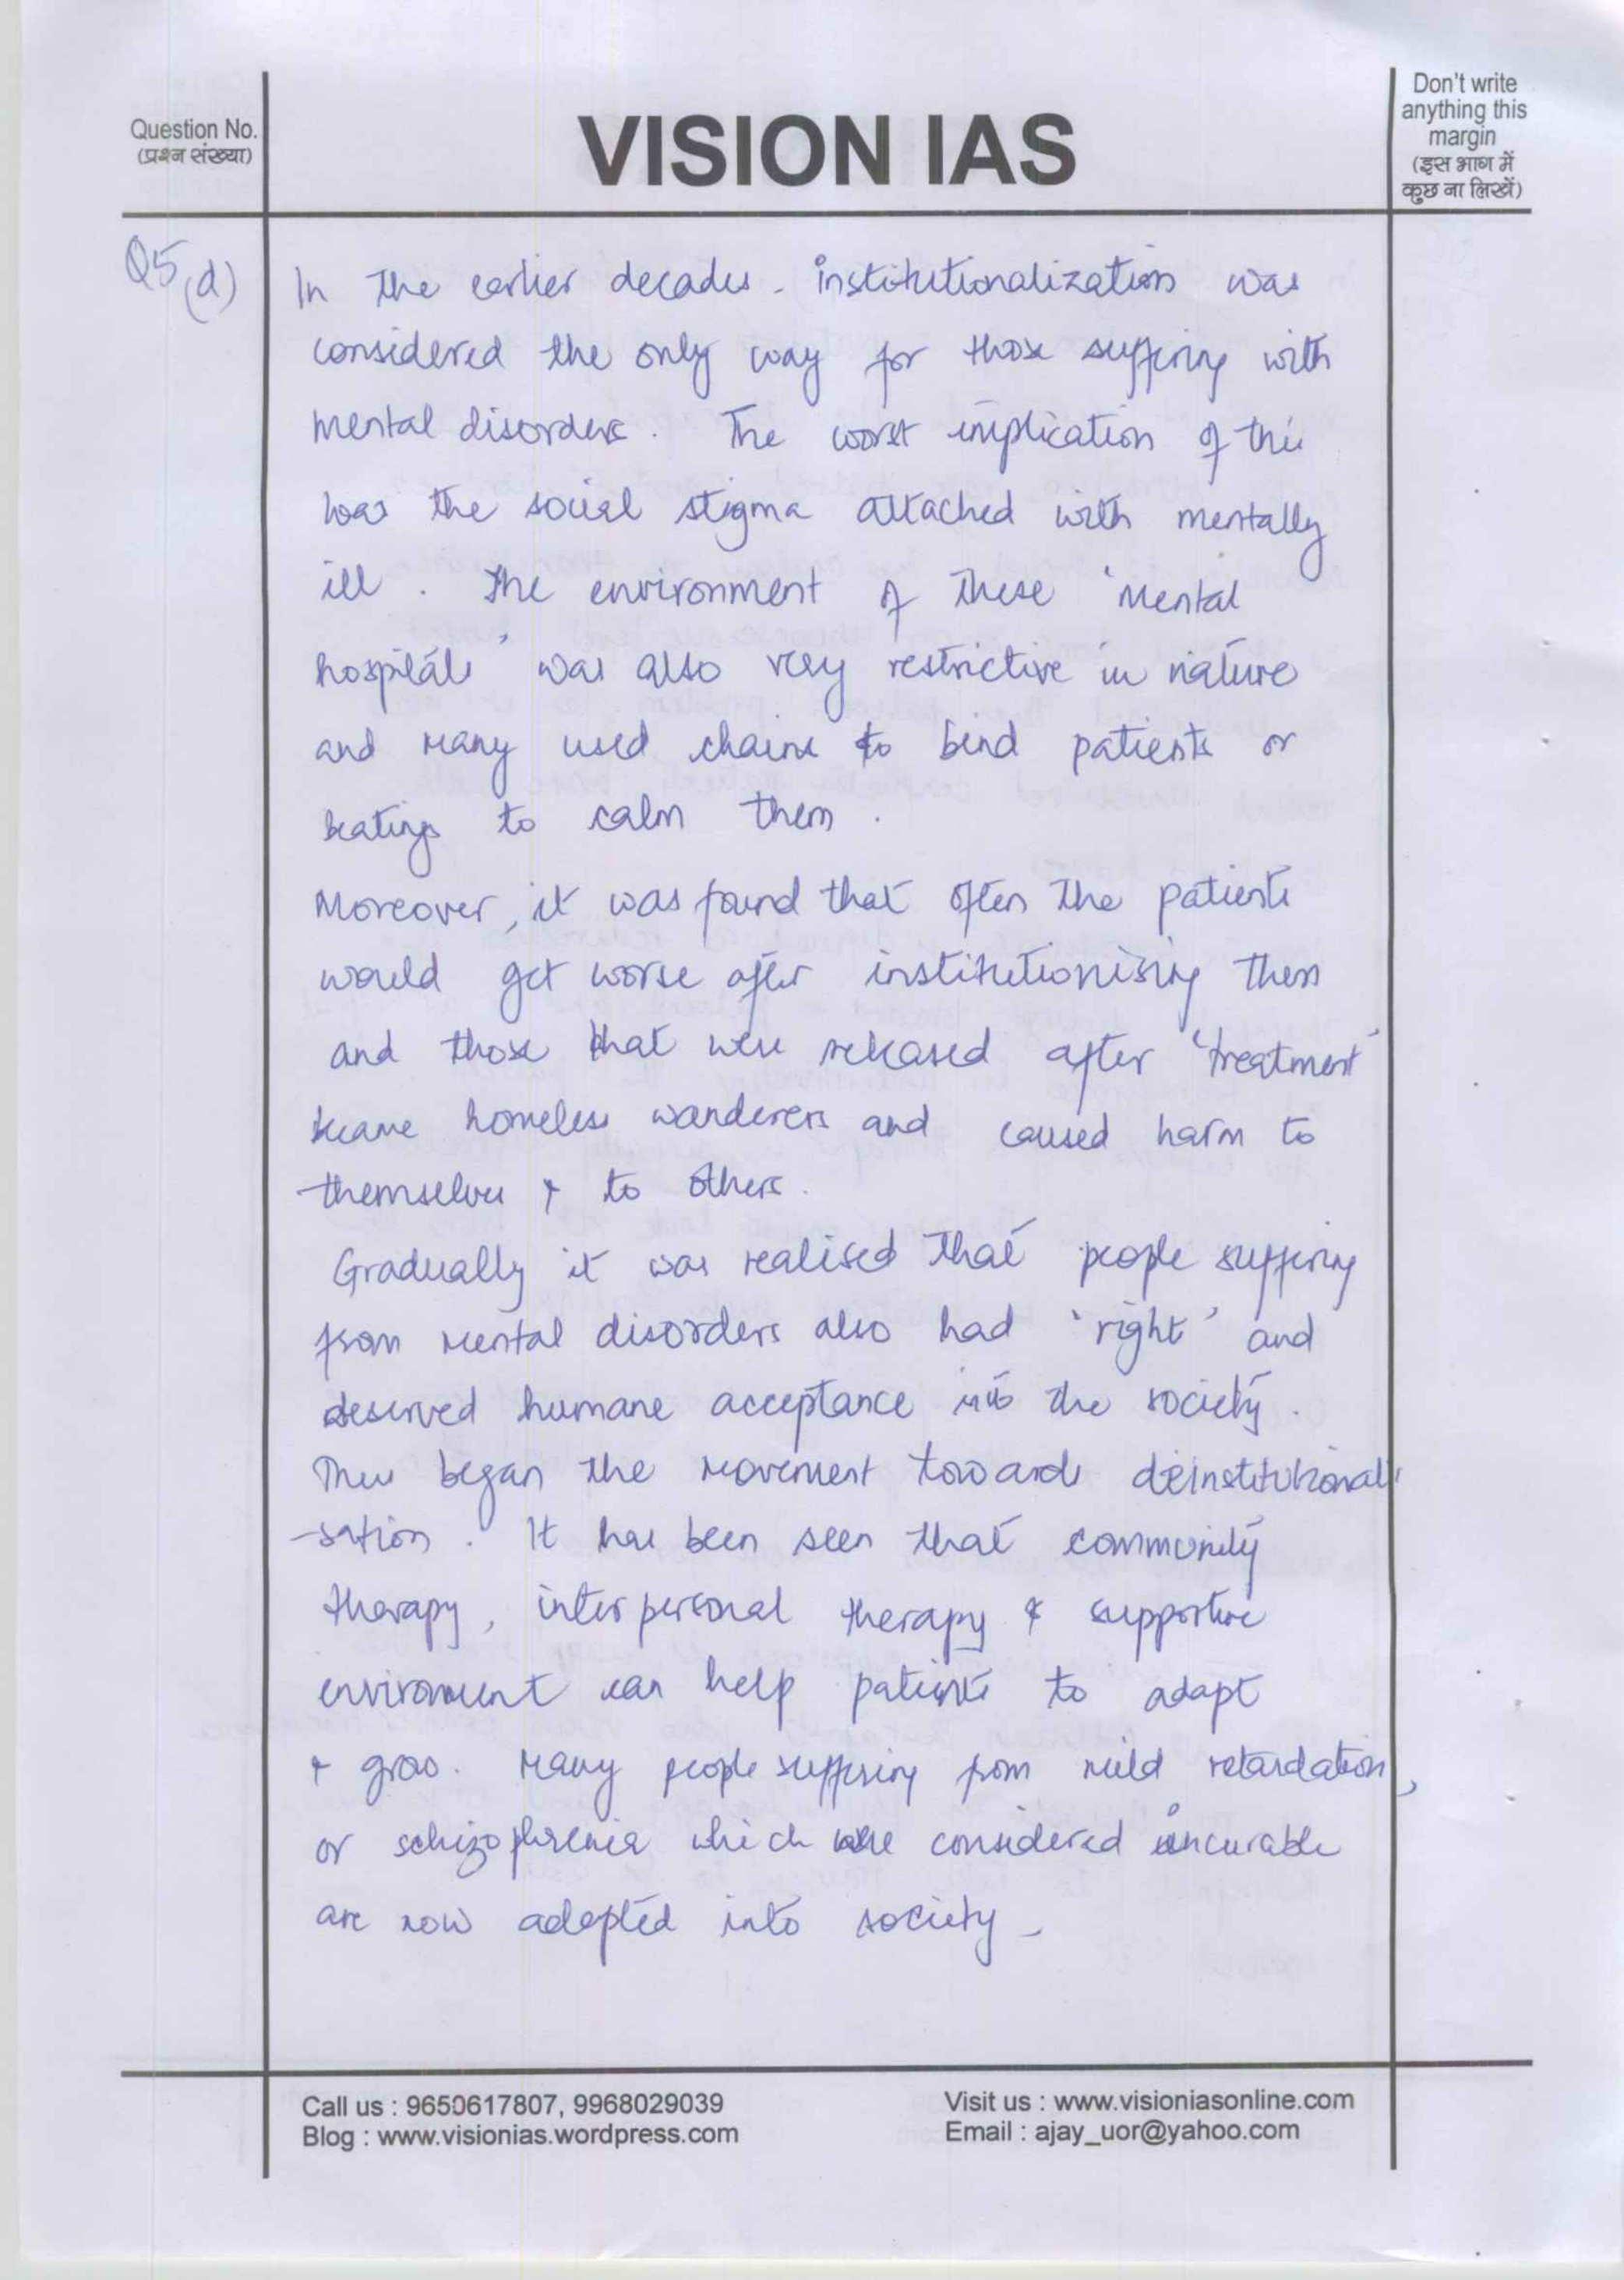 Question No.
(प्रश्न संख्या)
VISION IAS
Don't write
anything this
margin
(इस भाग में
कुछ ना लिखें)
Q5(d)
In the earlier decades - institutionalization was
considered the only way for those suffering with
mental disorders. The worst implication of this
was the social stigma attached with mentally
ill. The environment of these 'mental
hospitals' was also very restrictive in nature
and many used chains to bind patients or
beatings to calm them.
Moreover, it was found that often the patients
would get worse after institutionising them
and those that were released after 'treatment'
became homeless wanderers and caused harm to
themselves & to others.
Gradually it was realised that people suffering
from mental disorders also had 'right' and
deserved humane acceptance into the society.
Thus began the movement towards deinstitutionali
-sation. It has been seen that community
therapy, interpersonal therapy & supportive
enviroment can help patients to adapt
& grow. Many people suffering from mild retardation,
or schizophrenia which were considered incurable
are now adopted into society -
Call us : 9650617807, 9968029039
Blog : www.visionias.wordpress.com
Visit us : www.visioniasonline.com
Email : ajay_uor@yahoo.com